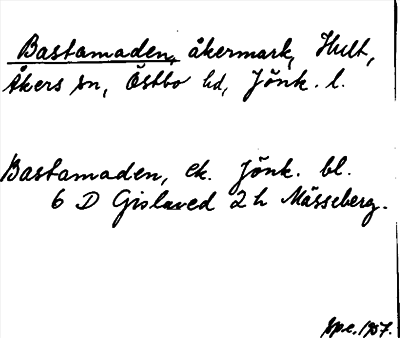 Bastamaden, åkermark, Hult,
Åkers sn, Östbo hd, Jönk. l.
Bastamaden, ek. Jönk. bl.
6 D Gislaved 2 h Mässeberg.
1957.